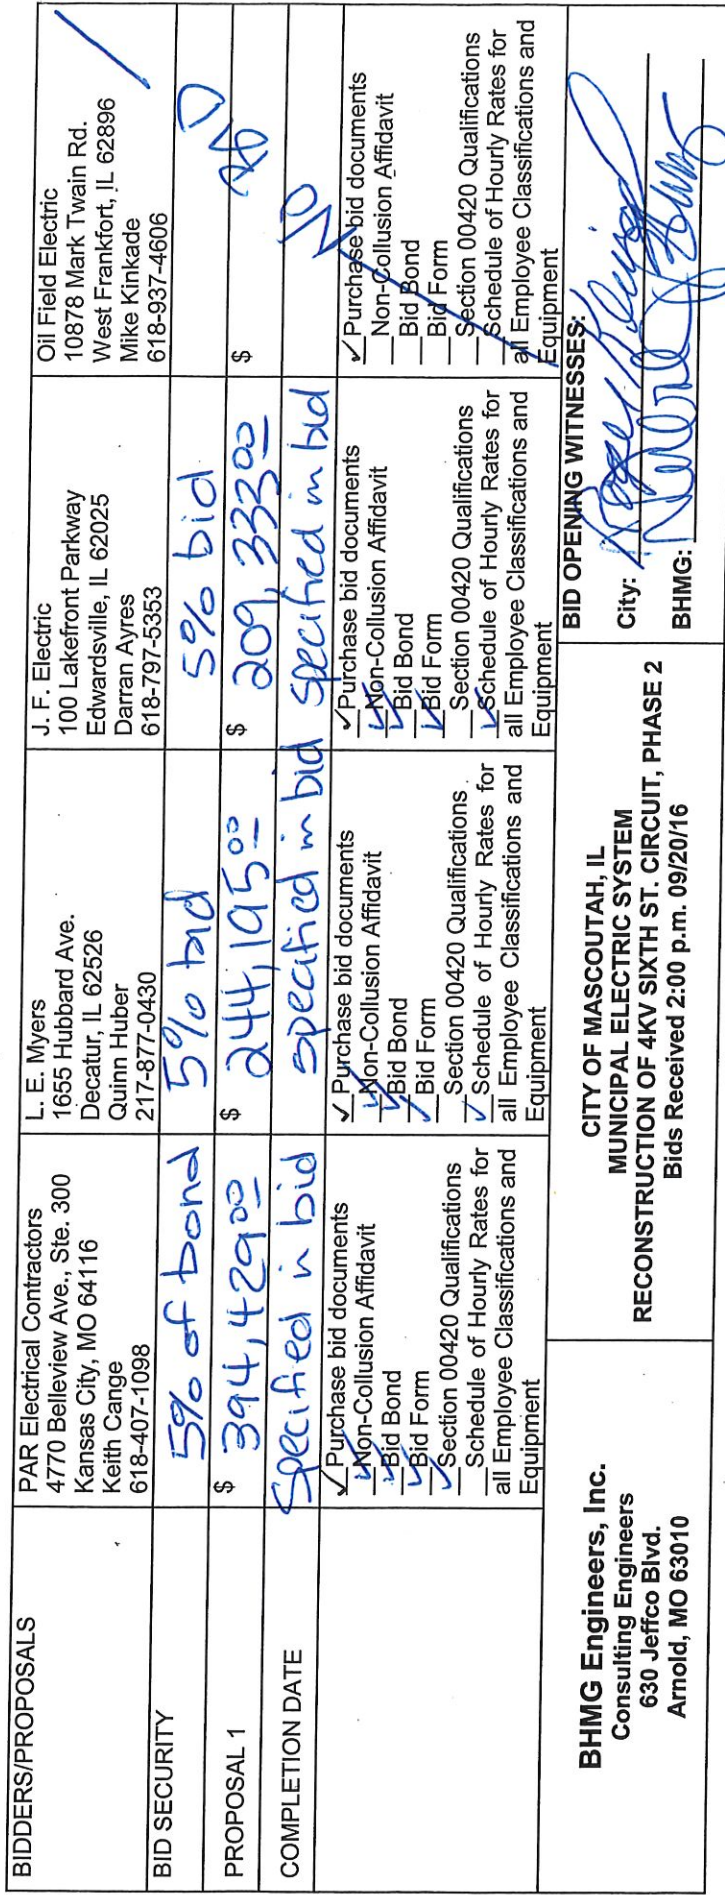 BIDDERS/PROPOSALS
PAR Electrical Contractors
4770 Belleview Ave., Ste. 300
Kansas City, MO 64116
Keith Cange
618-407-1098
L. E. Myers
1655 Hubbard Ave.
Decatur, IL 62526
Quinn Huber
217-877-0430
J. F. Electric
100 Lakefront Parkway
Edwardsville, IL 62025
Darran Ayres
618-797-5353
Oil Field Electric
10878 Mark Twain Rd.
West Frankfort, IL 62896
Mike Kinkade
618-937-4606
BID SECURITY
5% of bond
5% bid
5% bid
PROPOSAL 1
$ 394,429.00
$ 244,195.00
$ 209,333.00
$
COMPLETION DATE
Specified in bid
specified in bid
specified in bid
NO
✓ Purchase bid documents
✓ Non-Collusion Affidavit
✓ Bid Bond
✓ Bid Form
✓ Section 00420 Qualifications
__ Schedule of Hourly Rates for
all Employee Classifications and
Equipment
✓ Purchase bid documents
✓ Non-Collusion Affidavit
✓ Bid Bond
✓ Bid Form
__ Section 00420 Qualifications
✓ Schedule of Hourly Rates for
all Employee Classifications and
Equipment
✓ Purchase bid documents
✓ Non-Collusion Affidavit
✓ Bid Bond
✓ Bid Form
__ Section 00420 Qualifications
✓ Schedule of Hourly Rates for
all Employee Classifications and
Equipment
✓ Purchase bid documents
__ Non-Collusion Affidavit
__ Bid Bond
__ Bid Form
__ Section 00420 Qualifications
__ Schedule of Hourly Rates for
all Employee Classifications and
Equipment
BHMG Engineers, Inc.
Consulting Engineers
630 Jeffco Blvd.
Arnold, MO 63010
CITY OF MASCOUTAH, IL
MUNICIPAL ELECTRIC SYSTEM
RECONSTRUCTION OF 4KV SIXTH ST. CIRCUIT, PHASE 2
Bids Received 2:00 p.m. 09/20/16
BID OPENING WITNESSES:
City:
BHMG: